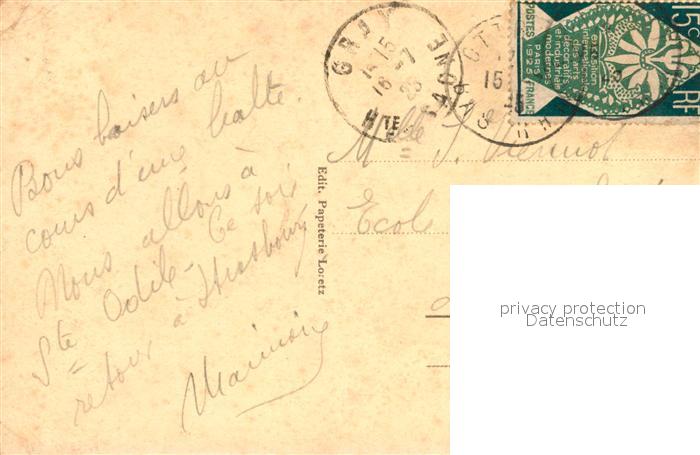 Bons baisers au
cours d'une halte.
Nous allons à
Ste Odile - Ce soir
retour à Strasbourg
Edit. Papeterie Loretz
Mlle
Ecole
GRAY
HTE SAONE
15c
RF
EXPOSITION
internationale
des arts
décoratifs
et industriels
modernes
PARIS
1925
POSTES
FRANCE
privacy protection
Datenschutz